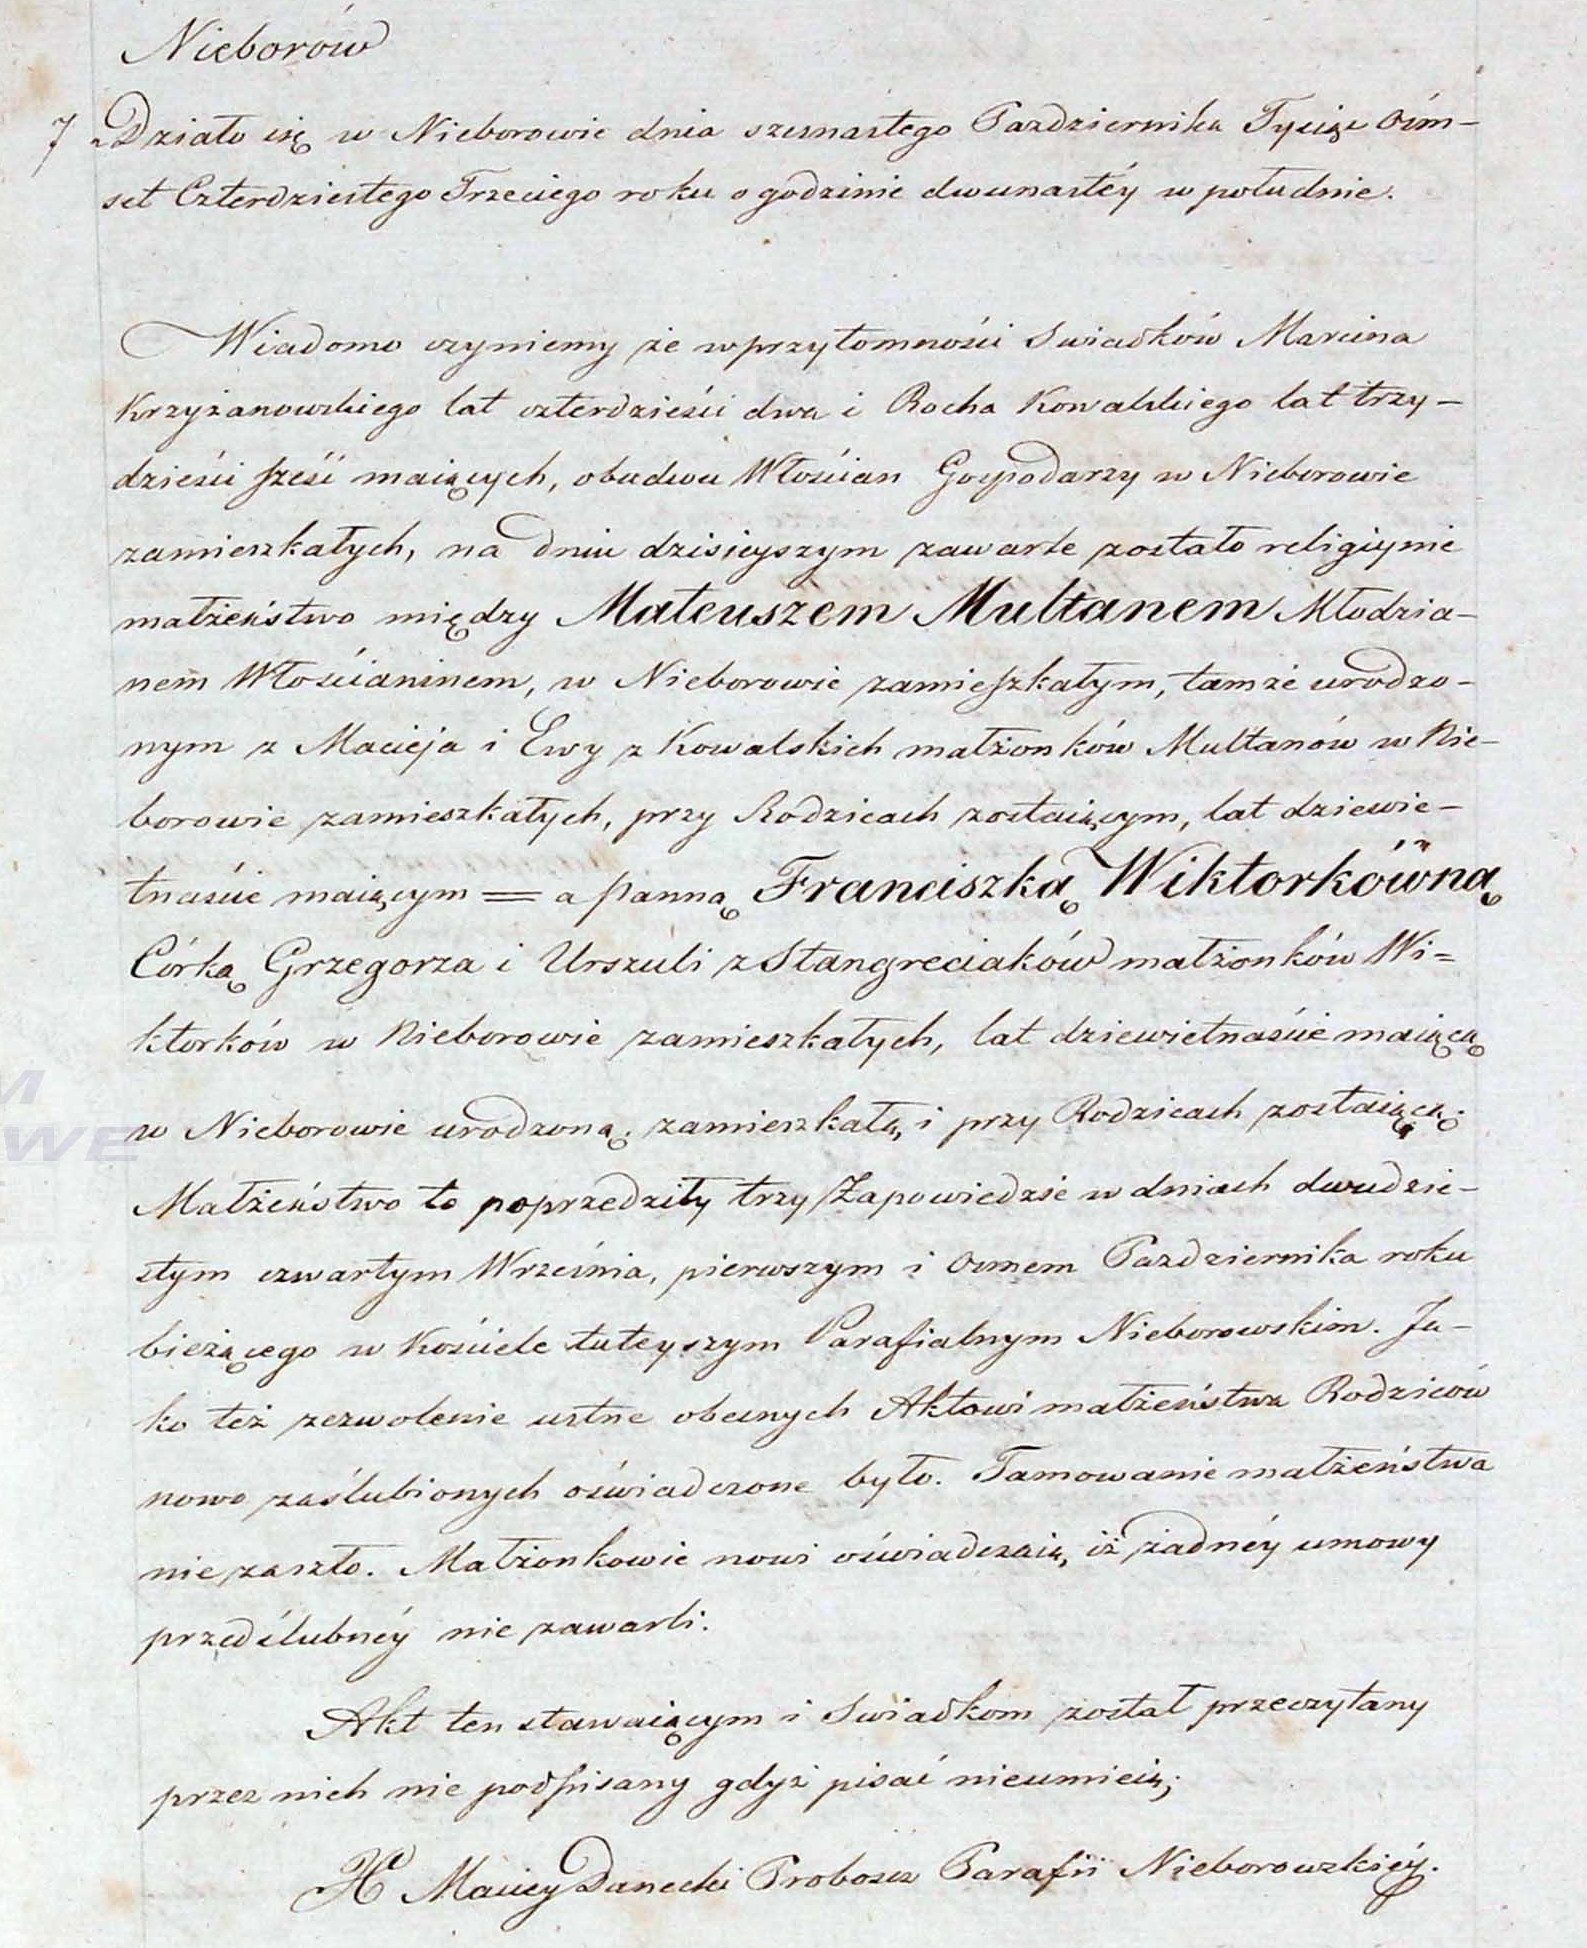 Nieborów
7 Działo się w Nieborowie dnia szesnastego Pazdziernika Tysiąc Ośm-
set Czterdziestego Trzeciego roku o godzinie dwunastéy w południe.
Wiadomo czyniemy że w przytomności Swiadków Marcina
Krzyżanowskiego lat czterdzieści dwa i Rocha Kowalskiego lat trzy-
dzieści sześć maiących, obudwu Włościan Gospodarzy w Nieborowie
zamieszkałych, na dniu dzisieyszym zawarte zostało religiynie
małżeństwo między Mateuszem Multanem Młodzia-
nem Włościaninem, w Nieborowie zamieszkałym, tamże urodzo-
nym z Macieja i Ewy z Kowalskich małżonków Multanów w Nie-
borowie zamieszkałych, przy Rodzicach zostaiącym, lat dziewie-
tnaście maiącym = a Panną Franciszką Wiktorkówną
Córką Grzegorza i Urszuli z Stangreciaków małżonków Wi=
ktorków w Nieborowie zamieszkałych, lat dziewietnaście maiącą
w Nieborowie urodzoną, zamieszkałą, i przy Rodzicach zostaiącą.
Małżeństwo to poprzedziły trzy Zapowiedzie w dniach dwudzie-
stym czwartym Września, pierwszym i osmem Pazdziernika roku
bieżącego w Kościele tuteyszym Parafialnym Nieborowskim. Ja-
ko też zezwolenie ustne obecnych Aktowi małżeństwa Rodziców
nowo zaślubionych oświadczone było. Tamowanie małżeństwa
nie zaszło. Małżonkowie nowi oświadczaią, iż żadnéy umowy
przedślubnéy nie zawarli.
Akt ten stawaiącym i Swiadkom został przeczytany
przez nich nie podpisany gdyż pisać nieumieią;
X Maciey Danecki Proboszcz Parafii Nieborowskiéy.